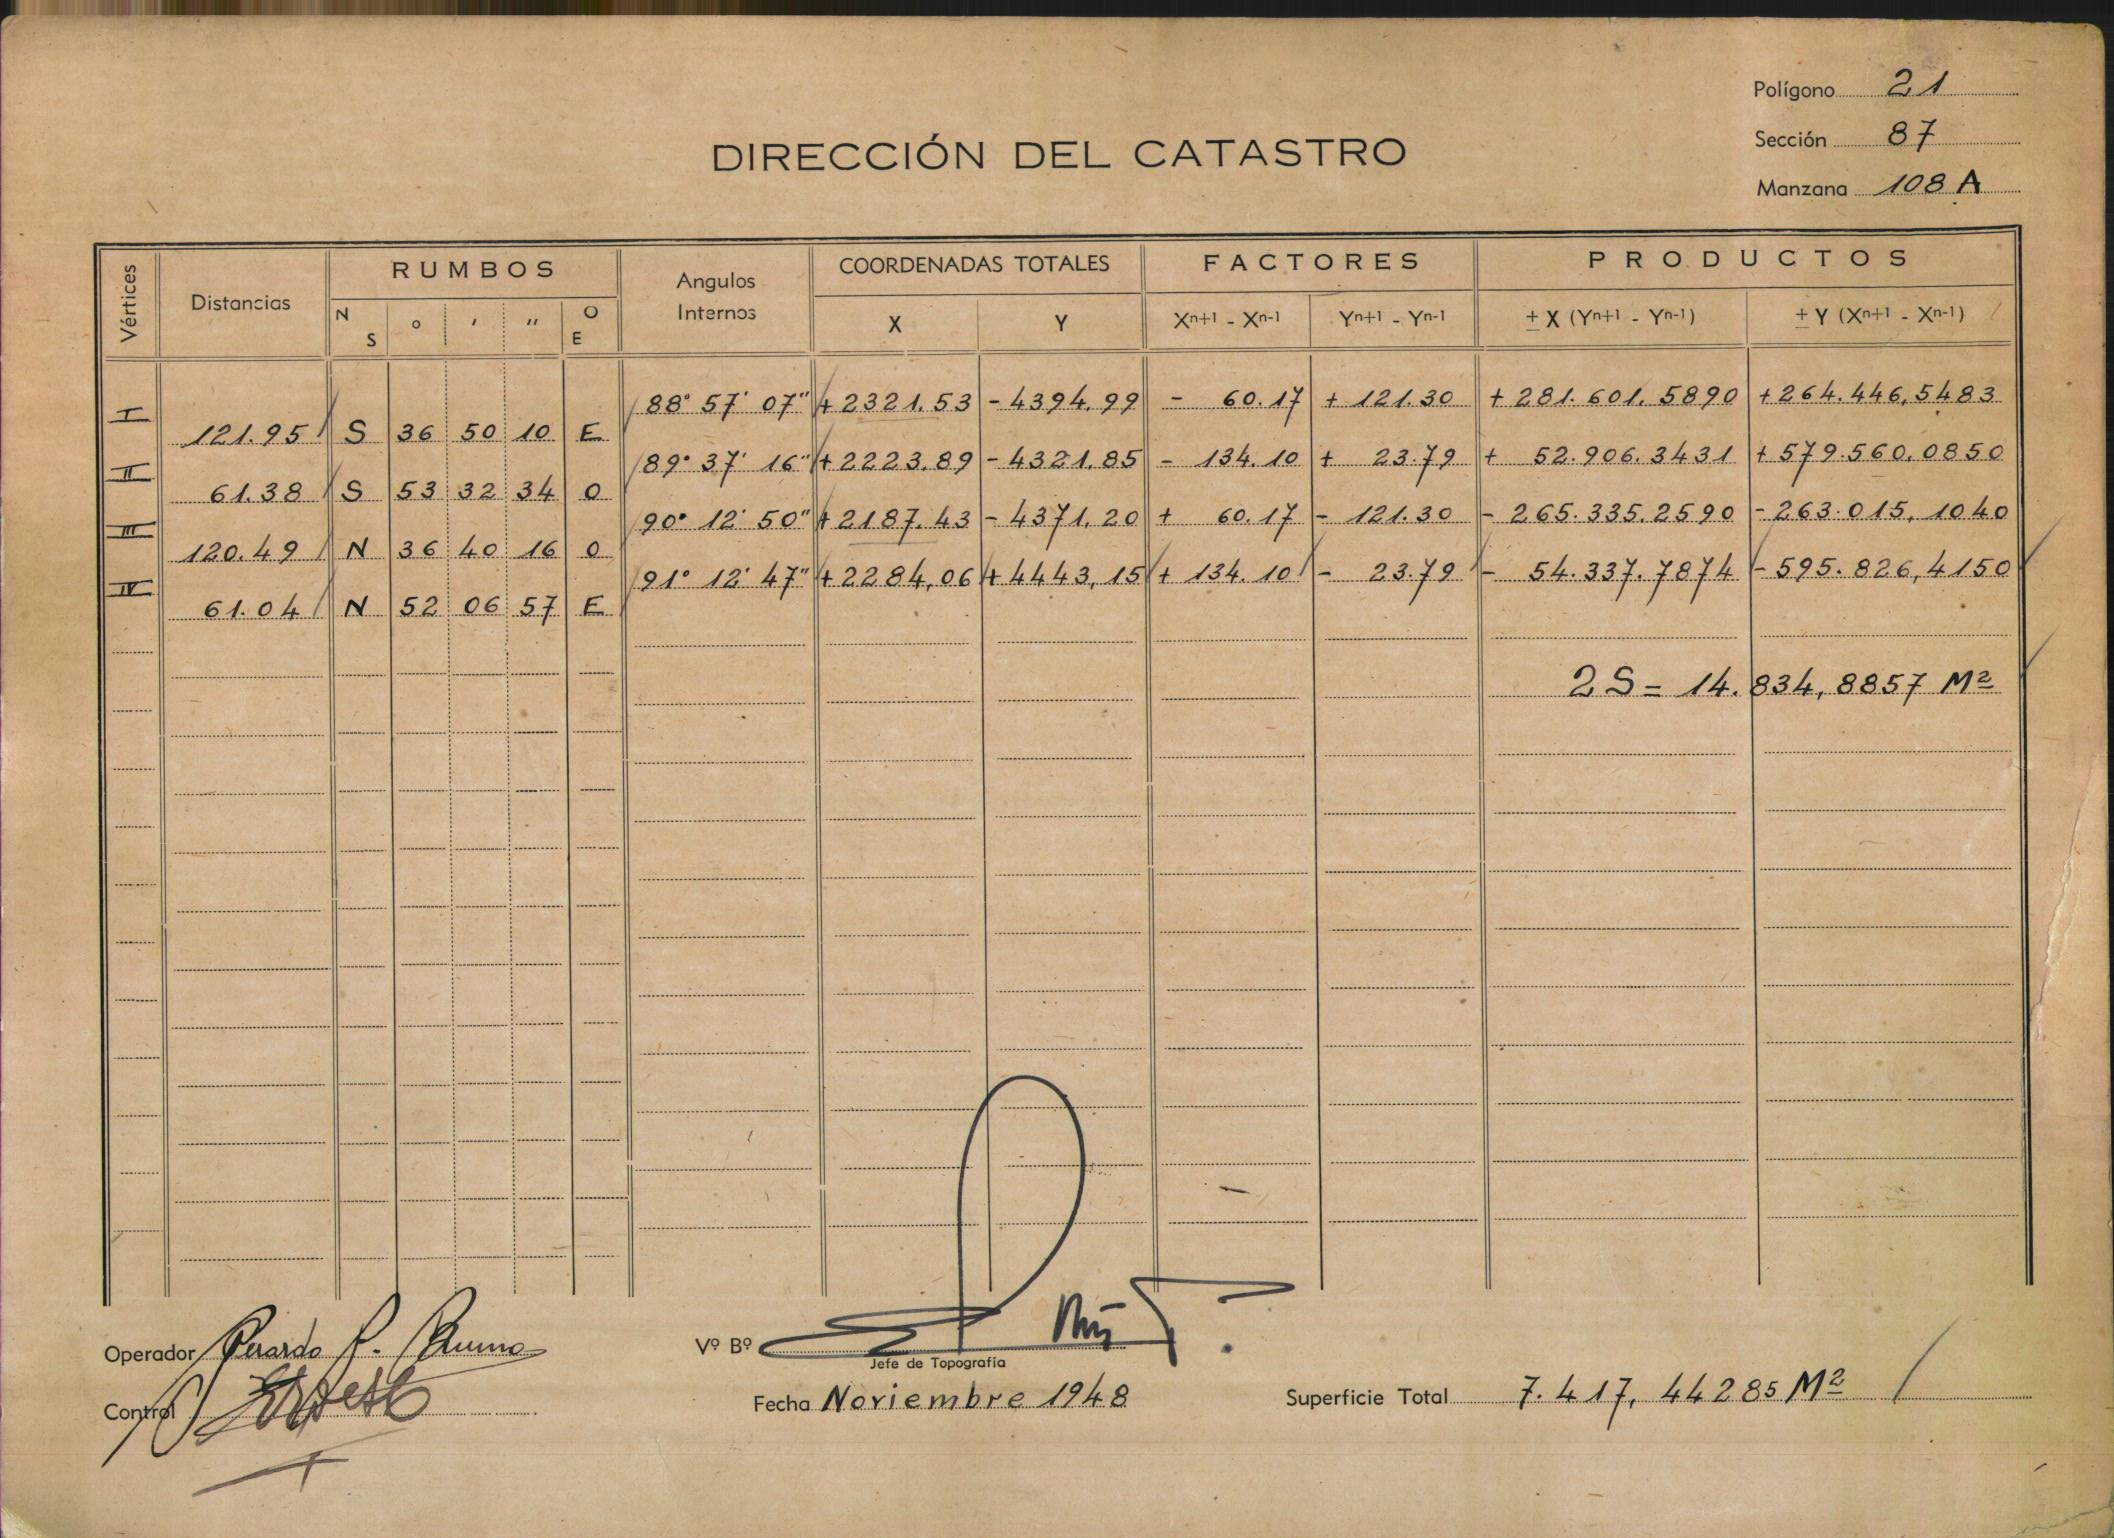 Polígono 21
Sección 87
Manzana 108 A
DIRECCIÓN DEL CATASTRO
Vértices Distancias RUMBOS Angulos Internos COORDENADAS TOTALES FACTORES PRODUCTOS
N S ° ' " O E X Y Xⁿ⁺¹ - Xⁿ⁻¹ Yⁿ⁺¹ - Yⁿ⁻¹ ± X (Yⁿ⁺¹ - Yⁿ⁻¹) ± Y (Xⁿ⁺¹ - Xⁿ⁻¹)
I 88° 57' 07" +2321.53 -4394.99 - 60.17 + 121.30 +281.601.5890 +264.446,5483
121.95 S 36 50 10 E
II 89° 37' 16" +2223.89 -4321.85 - 134.10 + 23.79 + 52.906.3431 +579.560.0850
61.38 S 53 32 34 O
III 90° 12' 50" +2187.43 -4371.20 + 60.17 - 121.30 -265.335.2590 -263.015,1040
120.49 N 36 40 16 O
IV 91° 12' 47" +2284,06 +4443,15 + 134.10 - 23.79 - 54.337.7874 -595.826,4150
61.04 N 52 06 57 E
2S = 14.834,8857 M²
Operador
Vº Bº
Jefe de Topografía
Control
Fecha Noviembre 1948
Superficie Total 7.417,44285 M²